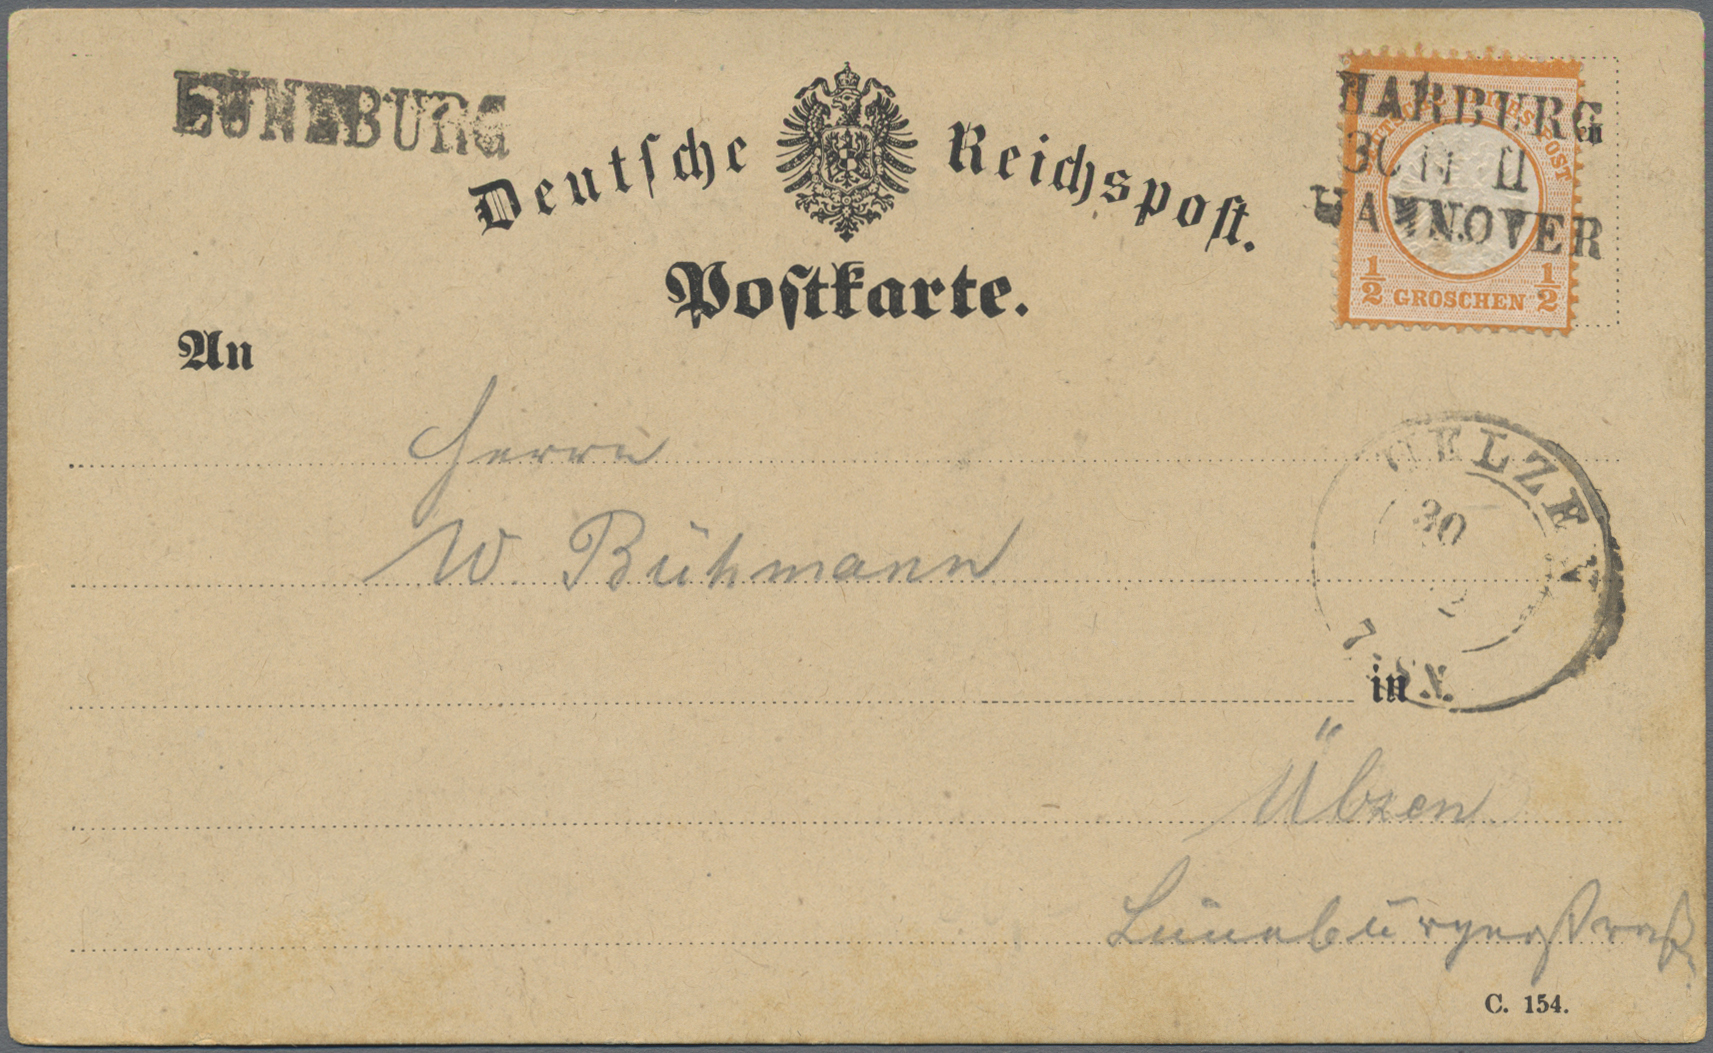 LÜNEBURG
Deutsche Reichspost.
Postkarte.
HARBURG
30 11 II
HANNOVER
½ GROSCHEN ½
An
Herrn
W. Bühmann
UELZEN
30
in
Ülzen
Lüneburgerstraße
C. 154.